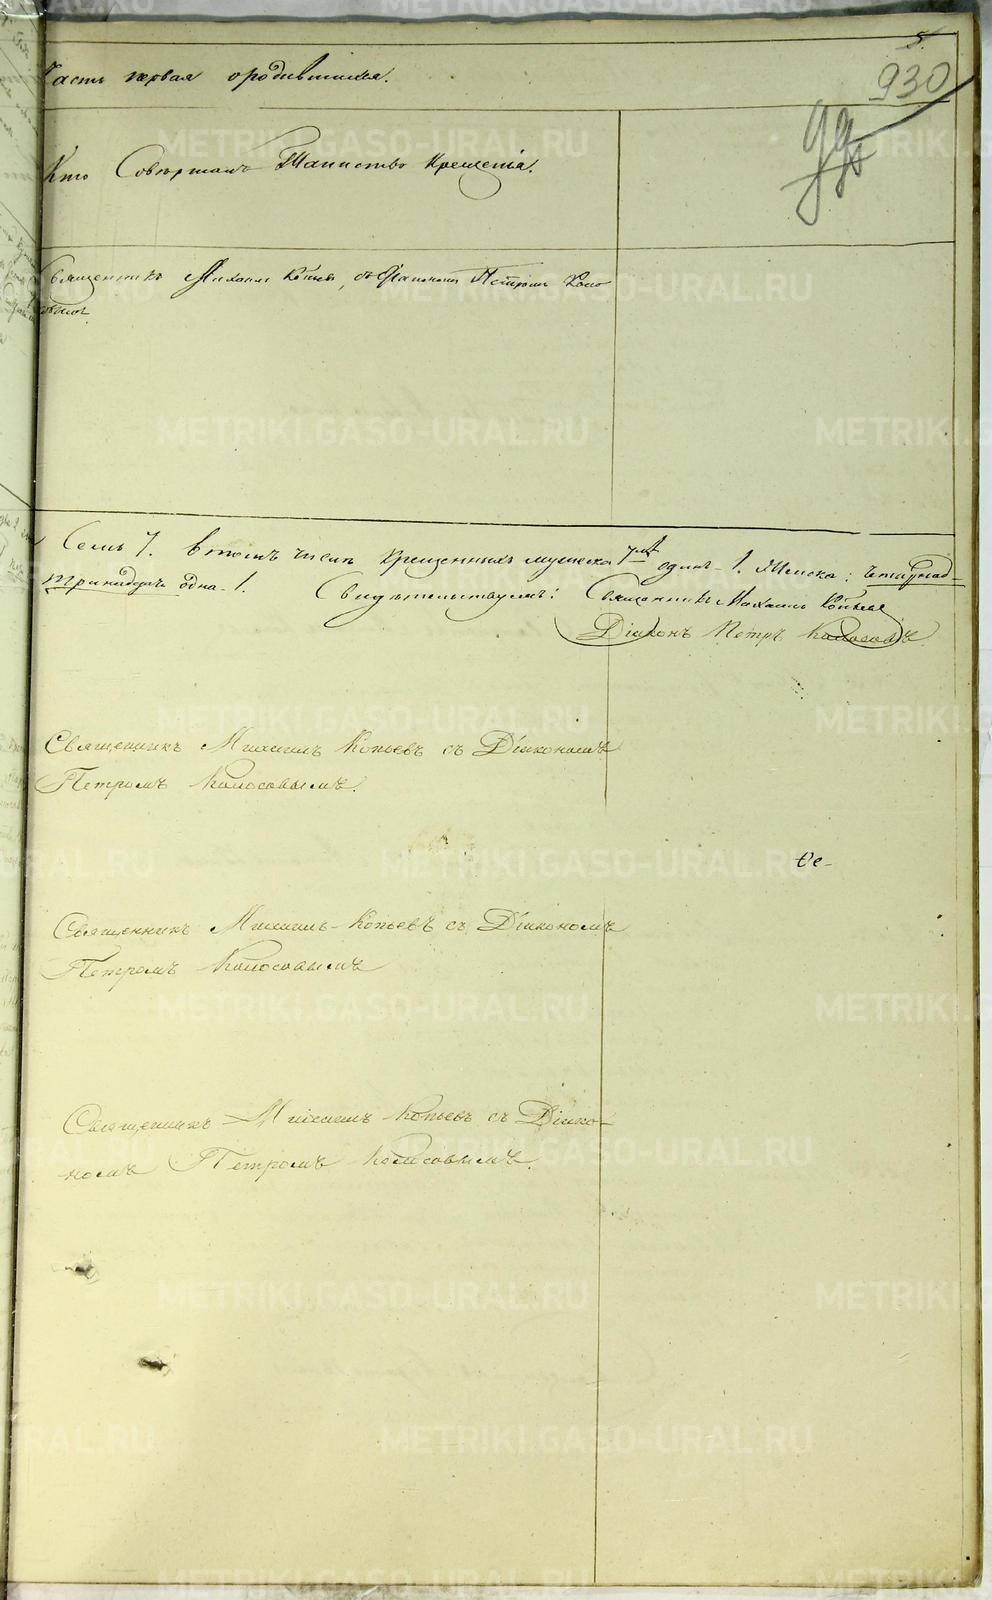 5.
Часть первая ородившихся.
930
Кто Совершалъ Таинство Крещенія.
Священникъ Михаилъ Копьевъ, съ Діакономъ Петромъ Коло
совымъ
Семь 7. Втомъ числѣ крещенныхъ мужеска одинъ 1. Женска:
одна 1. Свидѣтельствуемъ: Священникъ Михаилъ Копьевъ
Діаконъ Петръ Колосовъ
Священникъ Михаилъ Копьевъ съ Діакономъ
Петромъ Колосовымъ.
Священникъ Михаилъ Копьевъ съ Діакономъ
Петромъ Колосовымъ
Священникъ Михаилъ Копьевъ съ Діако-
номъ Петромъ Колосовымъ.
METRIKI.GASO-URAL.RU